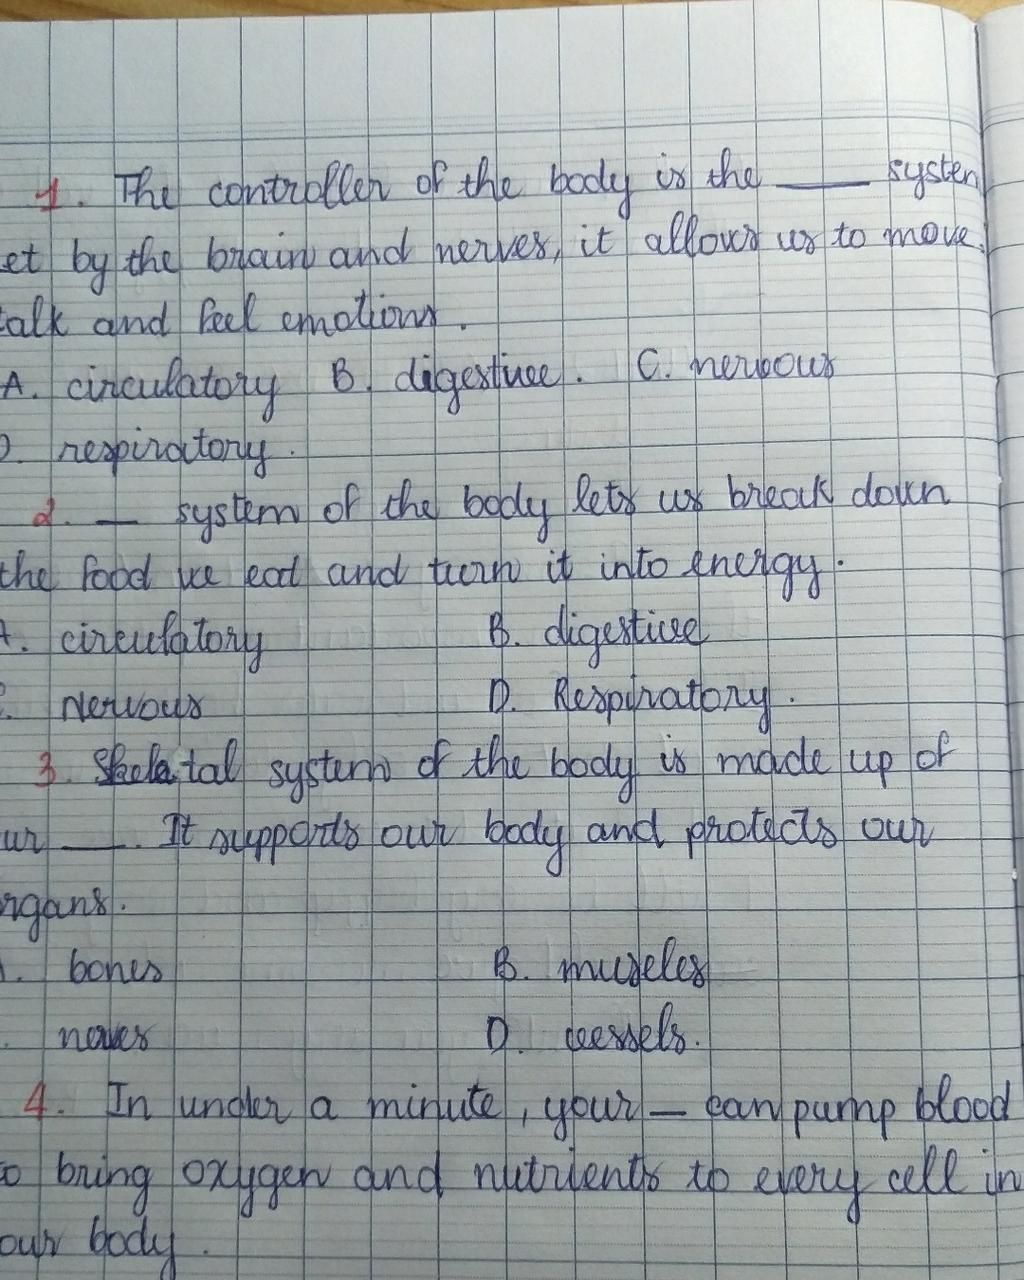 1. The controller of the body is the ___ system
et by the brain and nerves, it allows us to move,
talk and feel emotions.
A. circulatory B. digestive. C. nervous
D. respiratory.
2. ___ system of the body lets us break down
the food we eat and turn it into energy.
A. circulatory B. digestive
C. Nervous D. Respiratory.
3. Skelatal system of the body is made up of
ur ___. It supports our body and protects our
rgans.
A. bones B. muscles
D. vessels.
4. In under a minute, your ___ can pump blood
o bring oxygen and nutrients to every cell in
our body.